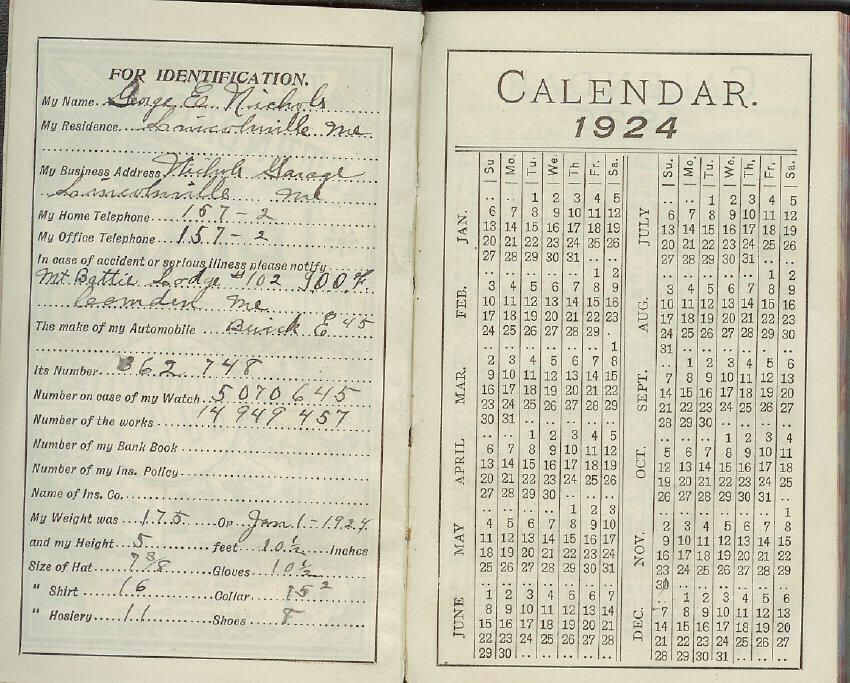 FOR IDENTIFICATION.
My Name George E. Nichols
My Residence Lincolnville Me
My Business Address Nichols Garage
Lincolnville Me
My Home Telephone 157-2
My Office Telephone 157-2
In case of accident or serious illness please notify
Mt Battie Lodge #102
Camden Me
The make of my Automobile Buick E 45
Its Number 362 748
Number on case of my Watch 5070645
Number of the works 14949457
Number of my Bank Book
Number of my Ins. Policy
Name of Ins. Co.
My Weight was 175 On Jan 1-1924
and my Height 5 feet 10½ Inches
Size of Hat 7 3/8 Gloves 10½
" Shirt 16 Collar 15 2
" Hosiery 11 Shoes 8
CALENDAR.
1924
Su Mo. Tu. We. Th. Fr. Sa.
JAN.
1 2 3 4 5
6 7 8 9 10 11 12
13 14 15 16 17 18 19
20 21 22 23 24 25 26
27 28 29 30 31
FEB.
1 2
3 4 5 6 7 8 9
10 11 12 13 14 15 16
17 18 19 20 21 22 23
24 25 26 27 28 29
MAR.
1
2 3 4 5 6 7 8
9 10 11 12 13 14 15
16 17 18 19 20 21 22
23 24 25 26 27 28 29
30 31
APRIL
1 2 3 4 5
6 7 8 9 10 11 12
13 14 15 16 17 18 19
20 21 22 23 24 25 26
27 28 29 30
MAY
1 2 3
4 5 6 7 8 9 10
11 12 13 14 15 16 17
18 19 20 21 22 23 24
25 26 27 28 29 30 31
JUNE
1 2 3 4 5 6 7
8 9 10 11 12 13 14
15 16 17 18 19 20 21
22 23 24 25 26 27 28
29 30
Su. Mo. Tu. We. Th. Fr. Sa.
JULY
1 2 3 4 5
6 7 8 9 10 11 12
13 14 15 16 17 18 19
20 21 22 23 24 25 26
27 28 29 30 31
AUG.
1 2
3 4 5 6 7 8 9
10 11 12 13 14 15 16
17 18 19 20 21 22 23
24 25 26 27 28 29 30
31
SEPT.
1 2 3 4 5 6
7 8 9 10 11 12 13
14 15 16 17 18 19 20
21 22 23 24 25 26 27
28 29 30
OCT.
1 2 3 4
5 6 7 8 9 10 11
12 13 14 15 16 17 18
19 20 21 22 23 24 25
26 27 28 29 30 31
NOV.
1
2 3 4 5 6 7 8
9 10 11 12 13 14 15
16 17 18 19 20 21 22
23 24 25 26 27 28 29
30
DEC.
1 2 3 4 5 6
7 8 9 10 11 12 13
14 15 16 17 18 19 20
21 22 23 24 25 26 27
28 29 30 31